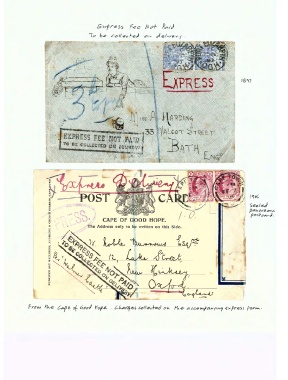 Express Fee Not Paid
To be collected on delivery
1897
EXPRESS
Miss A. Harding
33 Walcot Street
BATH
Eng
EXPRESS FEE NOT PAID
TO BE COLLECTED ON DELIVERY
Express Delivery
POST CARD
CAPE OF GOOD HOPE.
The Address only to be written on this Side.
EXPRESS FEE NOT PAID
TO BE COLLECTED ON DELIVERY
12, Lake Street
New Hinksey
Oxford
England
Sealed
panorama
postcard
From the Cape of Good Hope. Charges collected on the accompanying express form.